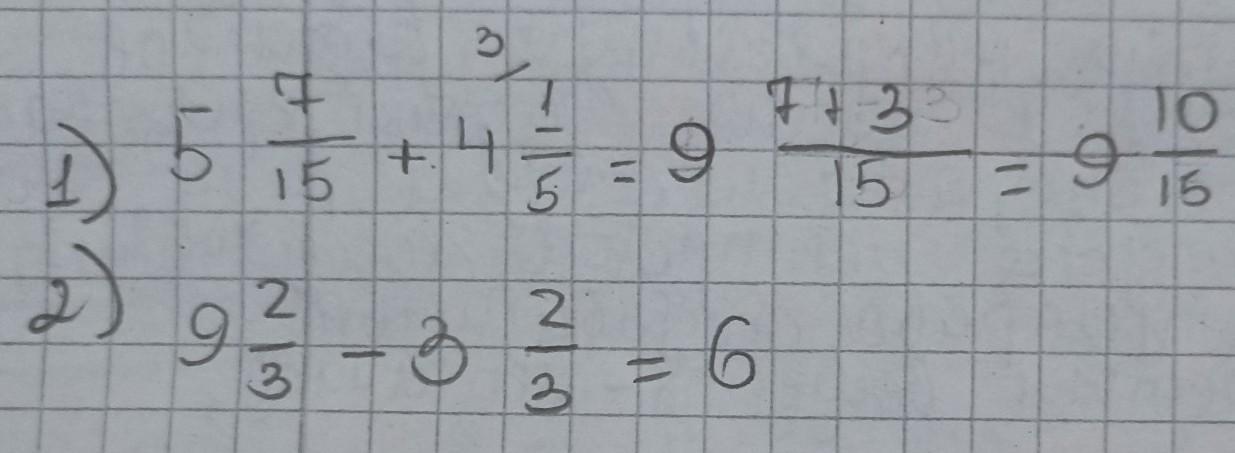 1) 5 7/15 + 4 3/ 1/5 = 9 7+3/15 = 9 10/15
2) 9 2/3 - 3 2/3 = 6